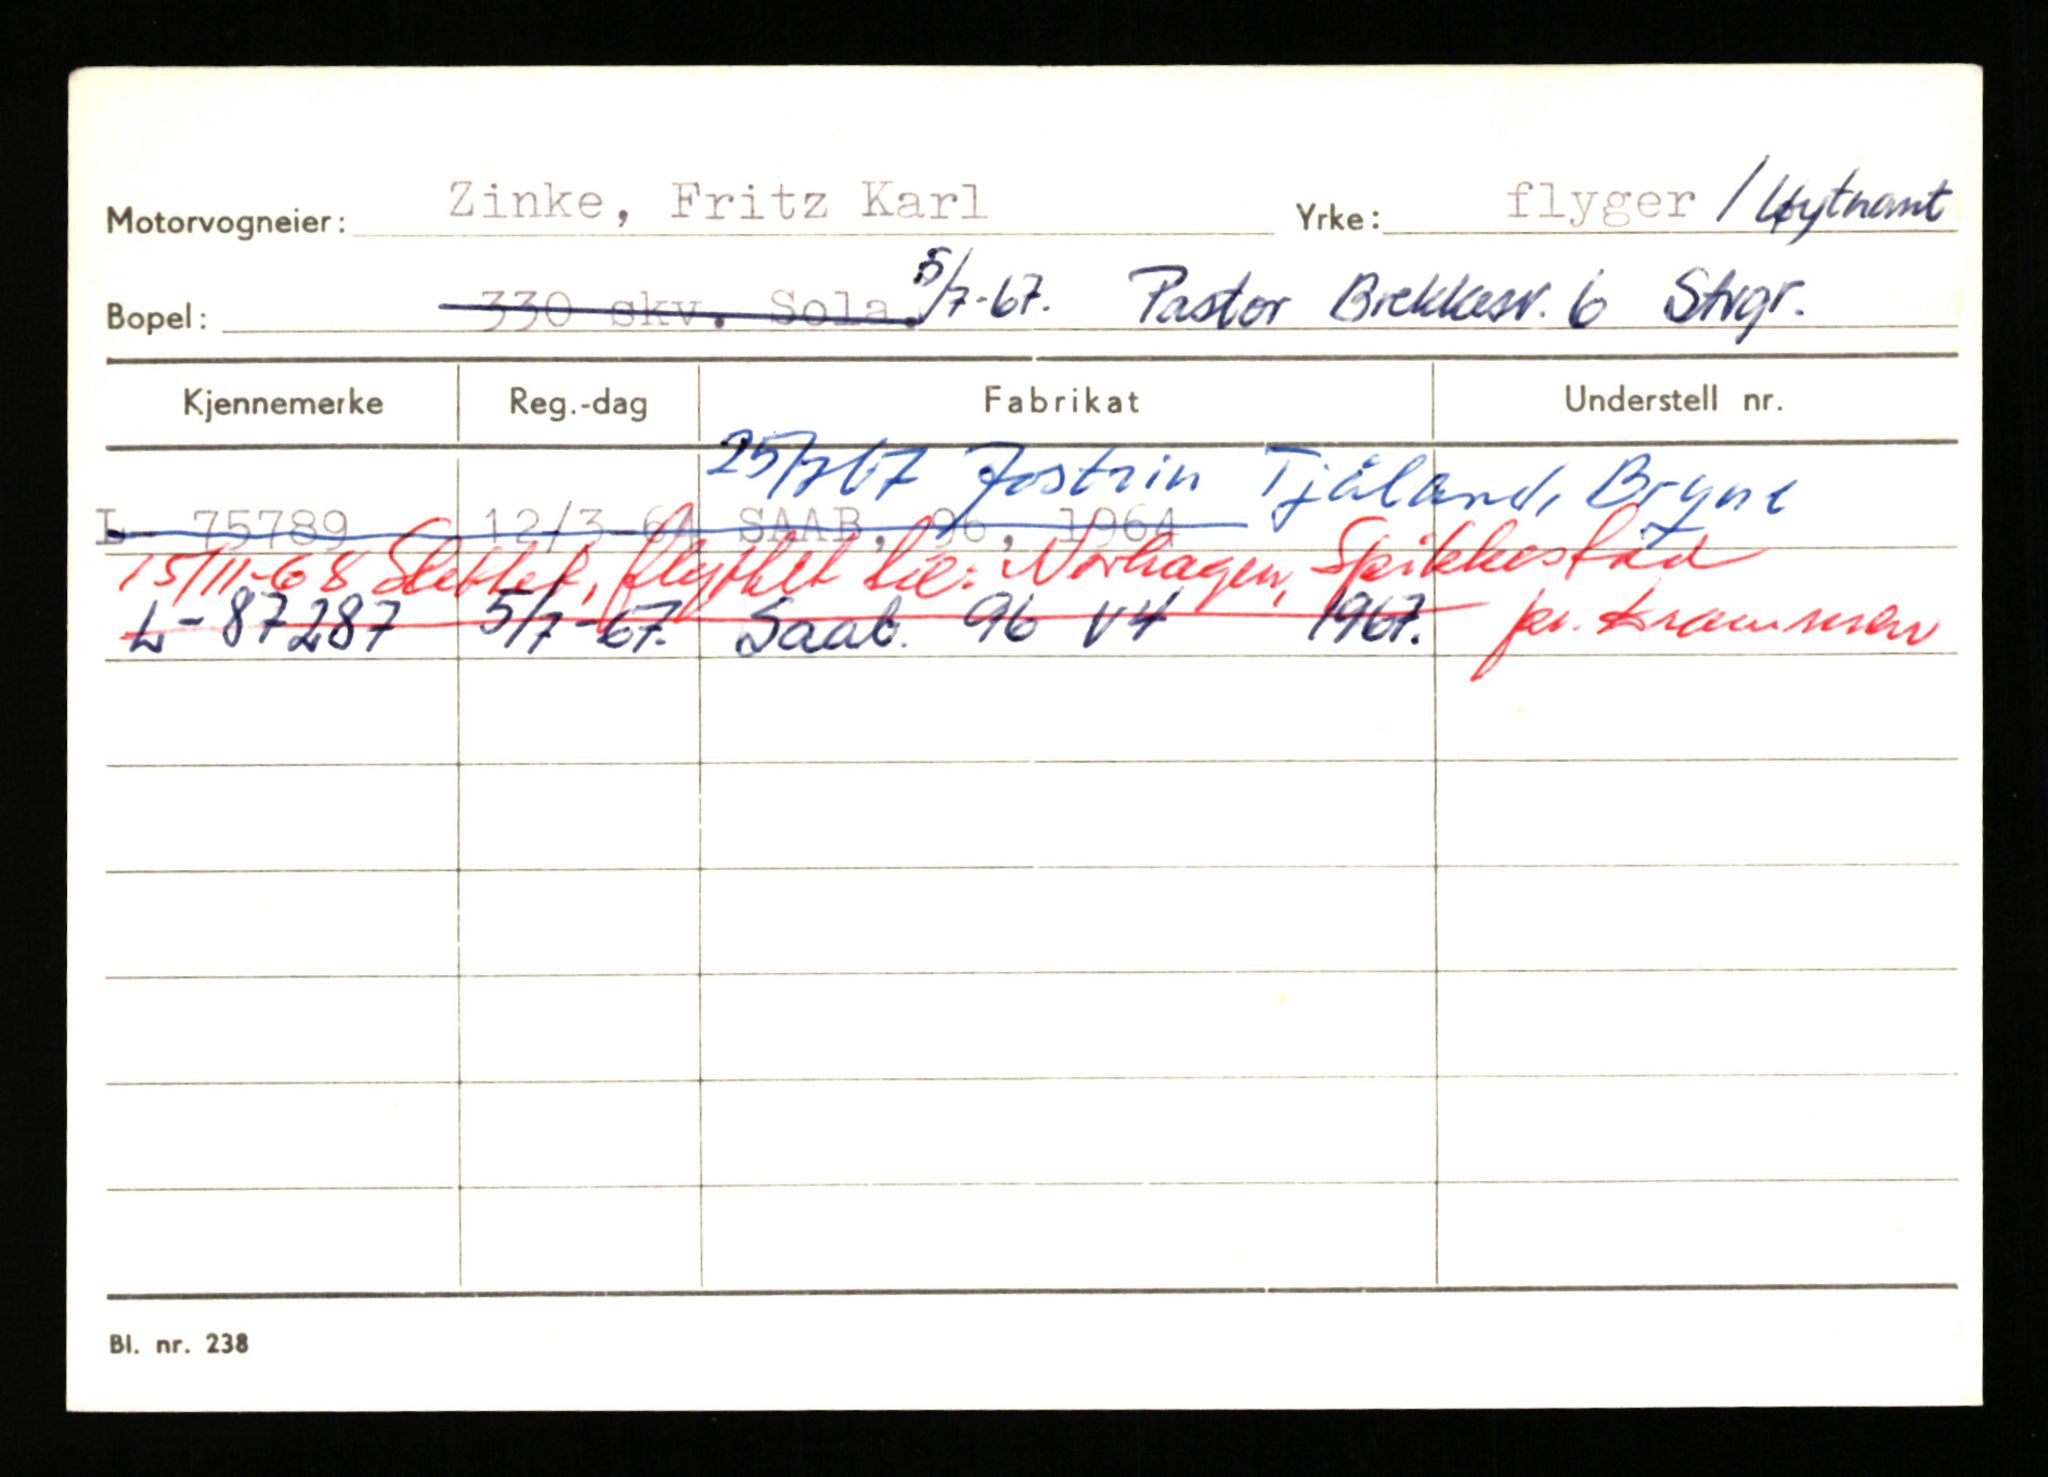 Motorvogneier: Zinke, Fritz Karl Yrke: flyger / løytnant
Bopel: 330 skv. Sola. 5/7-67. Pastor Brekkesv. 6 Strgr.
Kjennemerke Reg.-dag Fabrikat Understell nr.
25/7 67 Jostein Tjåland, Bryne
L- 75789 12/3-64 SAAB, 96, 1964
15/11-68 Slettet, flyttet til: Norhagen, Spikkestad
L-87287 5/7-67. Saab. 96 V4 1967. pr.
Bl. nr. 238